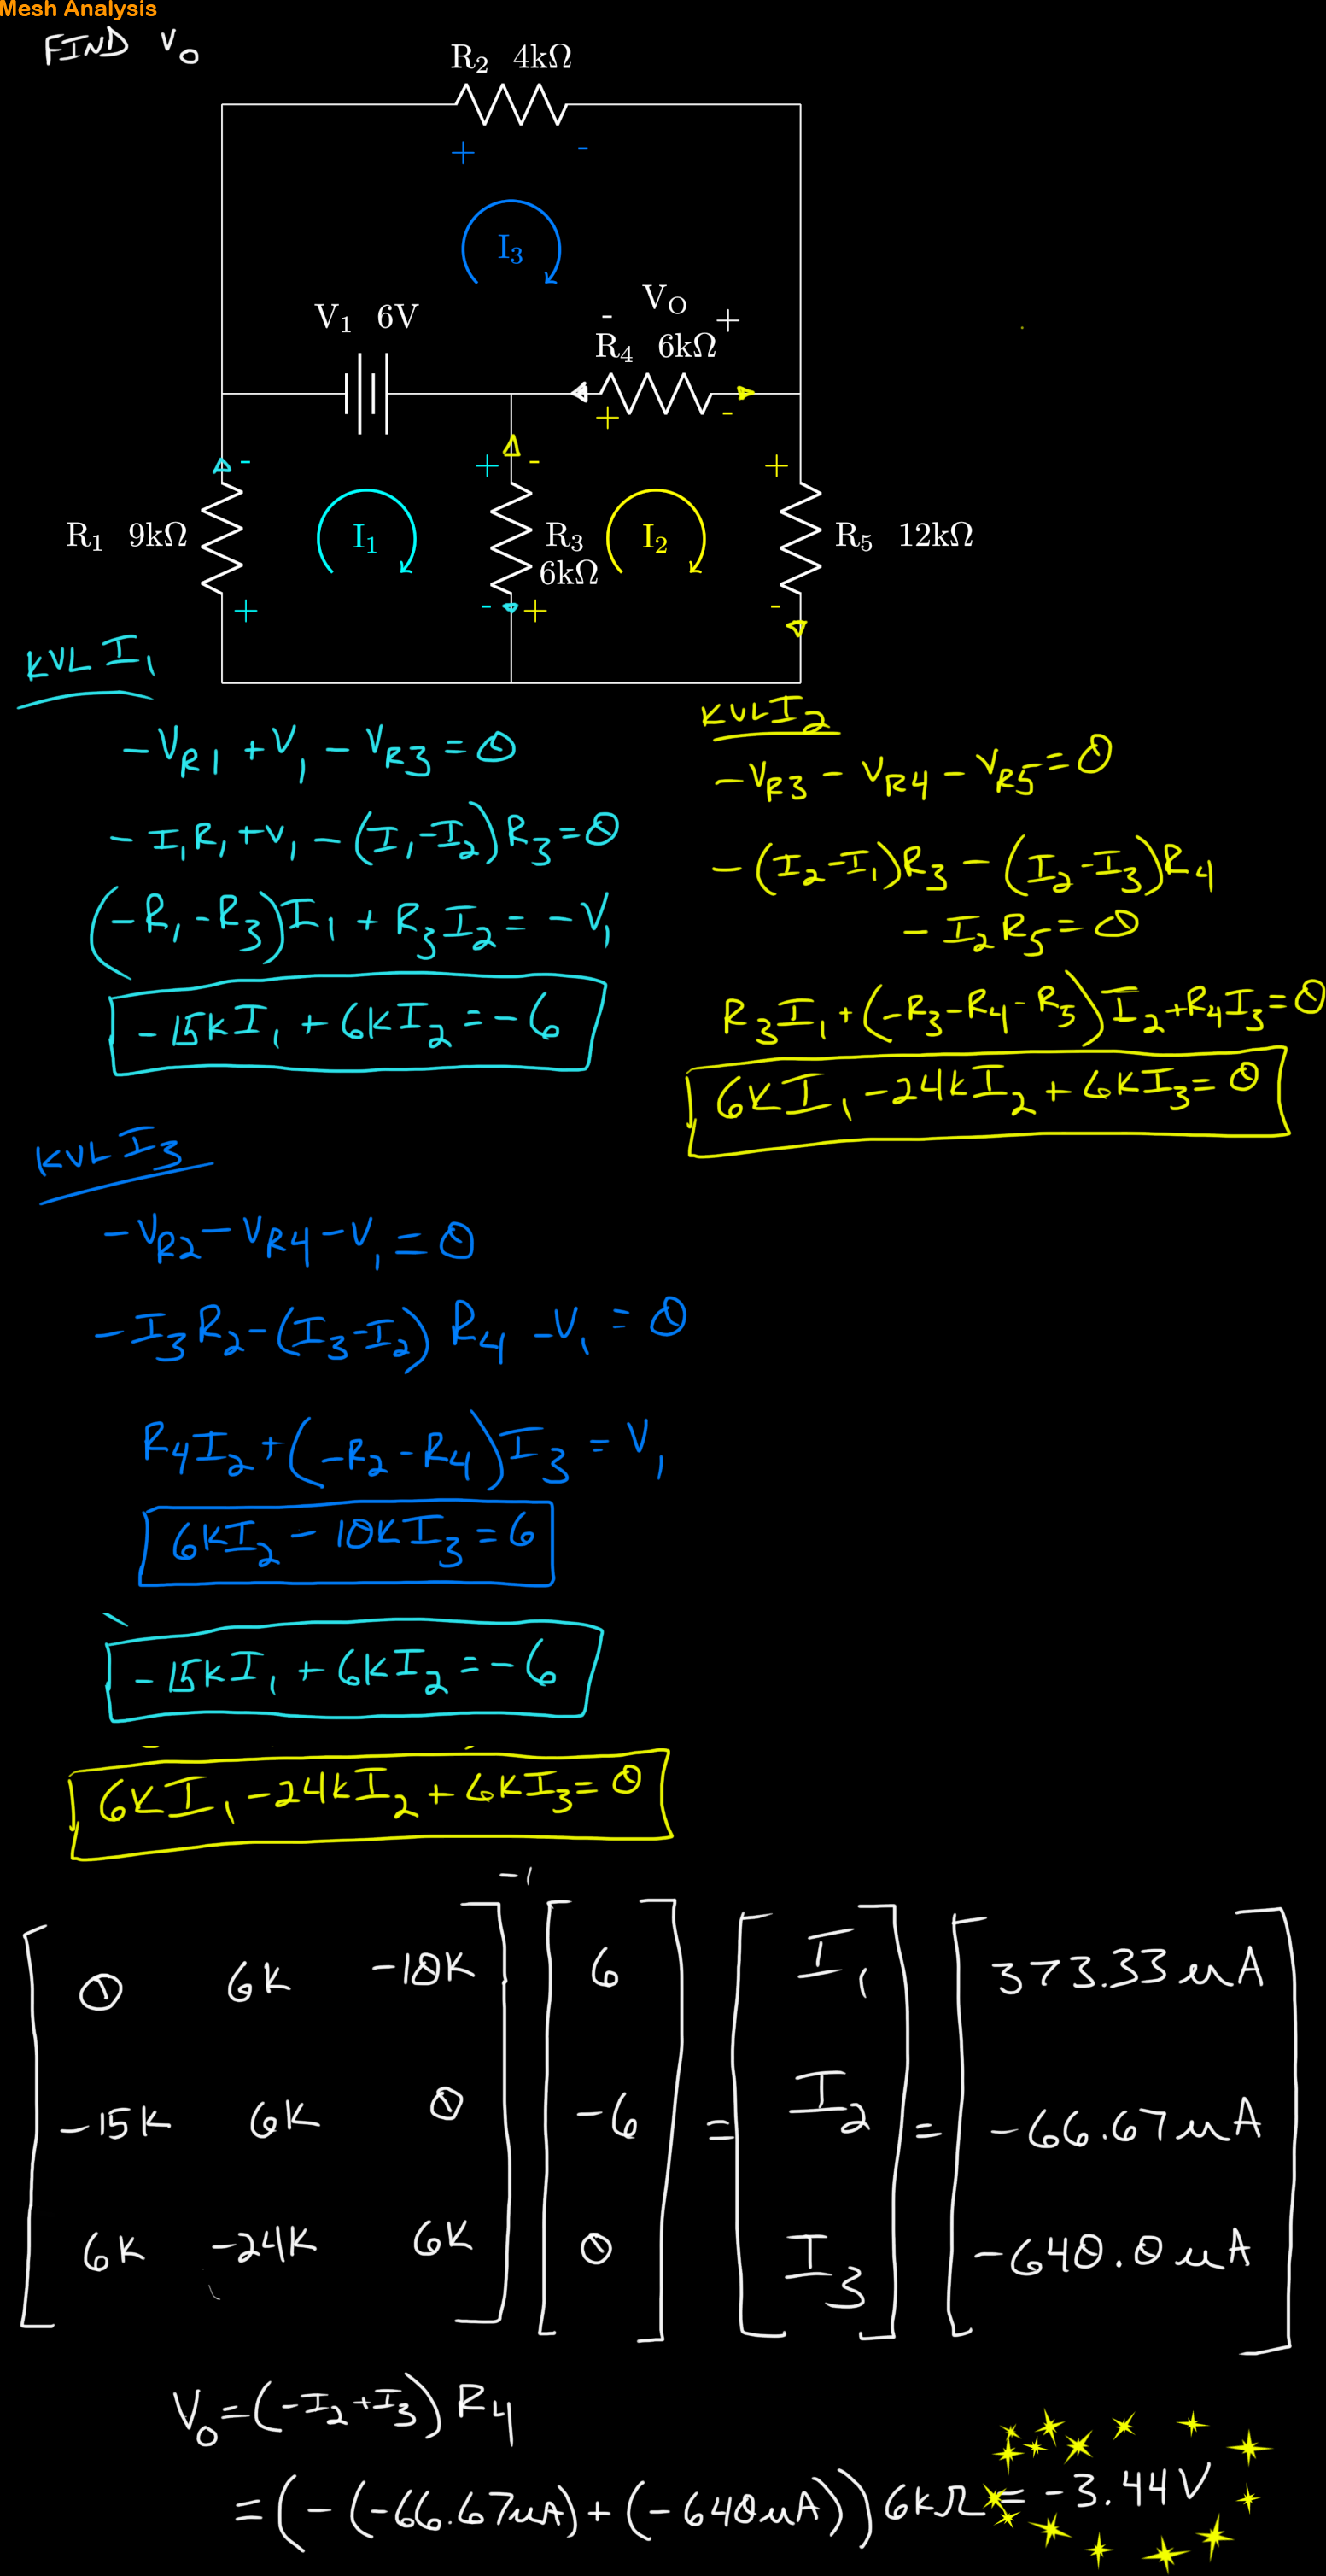 Mesh Analysis
FIND V₀
R₂ 4kΩ
+ -
I₃
V₁ 6V
- V_O +
R₄ 6kΩ
+ -
- + - +
R₁ 9kΩ
I₁
R₃
6kΩ
I₂
R₅ 12kΩ
+ - + -
KVL I₁
-V_R1 + V₁ - V_R3 = 0
-I₁R₁ + V₁ - (I₁-I₂)R₃ = 0
(-R₁-R₃)I₁ + R₃I₂ = -V₁
-15kI₁ + 6kI₂ = -6
KVL I₂
-V_R3 - V_R4 - V_R5 = 0
-(I₂-I₁)R₃ - (I₂-I₃)R₄
- I₂R₅ = 0
R₃I₁ + (-R₃-R₄-R₅)I₂ + R₄I₃ = 0
6kI₁ - 24kI₂ + 6kI₃ = 0
KVL I₃
-V_R2 - V_R4 - V₁ = 0
-I₃R₂ - (I₃-I₂)R₄ - V₁ = 0
R₄I₂ + (-R₂-R₄)I₃ = V₁
6kI₂ - 10kI₃ = 6
-15kI₁ + 6kI₂ = -6
6kI₁ - 24kI₂ + 6kI₃ = 0
-1
0 6k -10k 6 I₁ 373.33uA
-15k 6k 0 -6 = I₂ = -66.67uA
6k -24k 6k 0 I₃ -640.0uA
V₀ = (-I₂+I₃)R₄
= (-(-66.67uA)+(-640uA))6kΩ = -3.44V